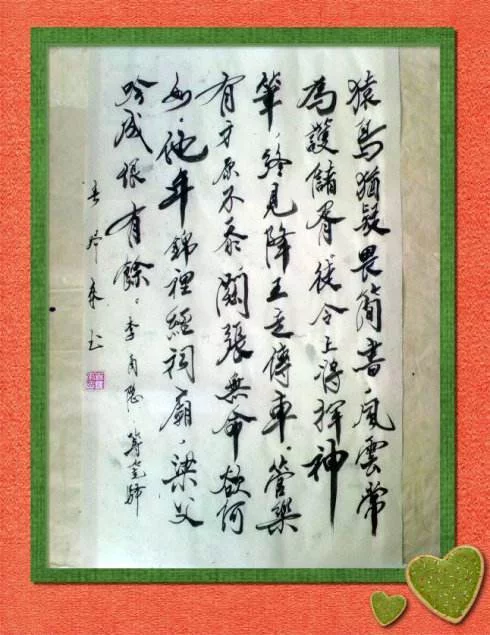 猿鳥猶疑畏簡書，風雲常
為護儲胥。徒令上將揮神
筆，終見降王走傳車。管樂
有才原不忝，關張無命欲何
如。他年錦裡經祠廟，梁父
吟成恨有餘。李商隱 籌筆驛